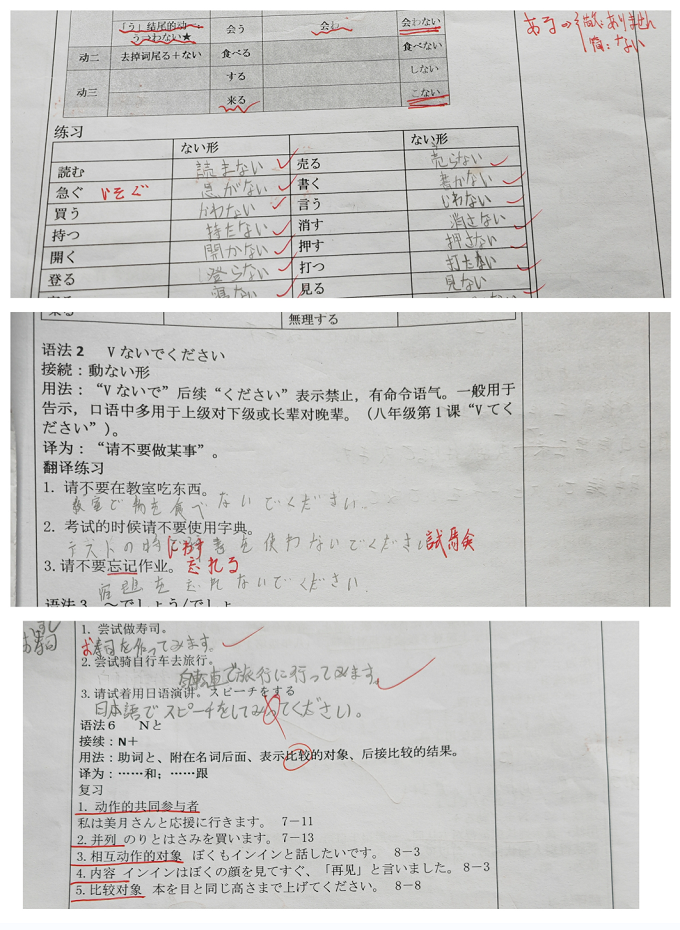 「う」结尾的动
うつわない★ 会う 会わ 会わない
动二 去掉词尾る＋ない 食べる 食べない
动三 する しない
来る こない
ある ありません
ない
练习
ない形 ない形
読む 読まない 売る 売らない
急ぐ いそぐ 急がない 書く 書かない
買う かわない 言う いわない
持つ 持たない 消す 消さない
開く 開かない 押す 押さない
登る 登らない 打つ 打たない
見る 見ない
無理する
语法 2 V ないでください
接続：動ない形
用法：“V ないで”后续“ください”表示禁止，有命令语气。一般用于
告示，口语中多用于上级对下级或长辈对晚辈。（八年级第 1 课“V てく
ださい”）。
译为：“请不要做某事”。
翻译练习
1. 请不要在教室吃东西。
教室で物を食べないでください.
2. 考试的时候请不要使用字典。
テストの時に辞書を使わないでください 試験
3. 请不要忘记作业。 忘れる
宿題を忘れないでください.
语法 3 ～でしょう/でしょ
お寿司
1. 尝试做寿司。
お寿司を作ってみます。
2. 尝试骑自行车去旅行。
自転車で旅行に行ってみます。
3. 请试着用日语演讲。スピーチをする
日本語でスピーチをしてみてください。
语法 6 Nと
接续：N＋
用法：助词と、附在名词后面、表示比较的对象、后接比较的结果。
译为：……和；……跟
复习
1. 动作的共同参与者
私は美月さんと応援に行きます。 7－11
2. 并列 のりとはさみを買います。 7－13
3. 相互动作的对象 ぼくもインインと話したいです。 8－3
4. 内容 インインはぼくの顔を見てすぐ、「再见」と言いました。 8－3
5. 比较对象 本を目と同じ高さまで上げてください。 8－8